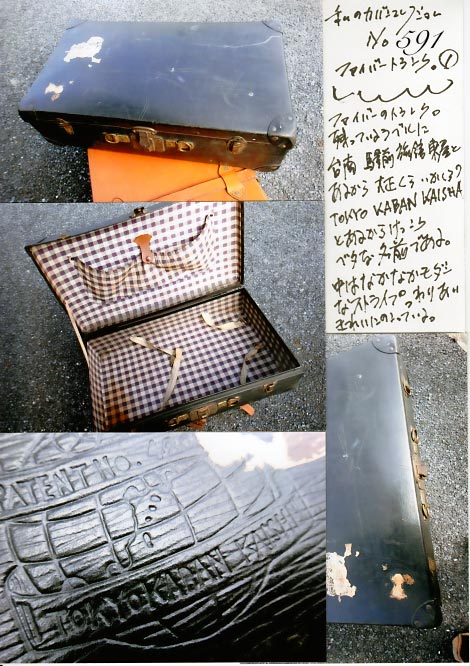 私のカバンコレクション
No 591
ファイバートランク。①
ファイバーのトランク。
残っているラベルに
台南 駅前 旅館 東屋と
あるから 大正くらいかしら?
TOKYO KABAN KAISHA
とあるから
ベタな名前である。
中はなかなかモダン
なストライプ。わりあい
きれいにのこっている。
PATENT NO.
TOKYO KABAN KAISH